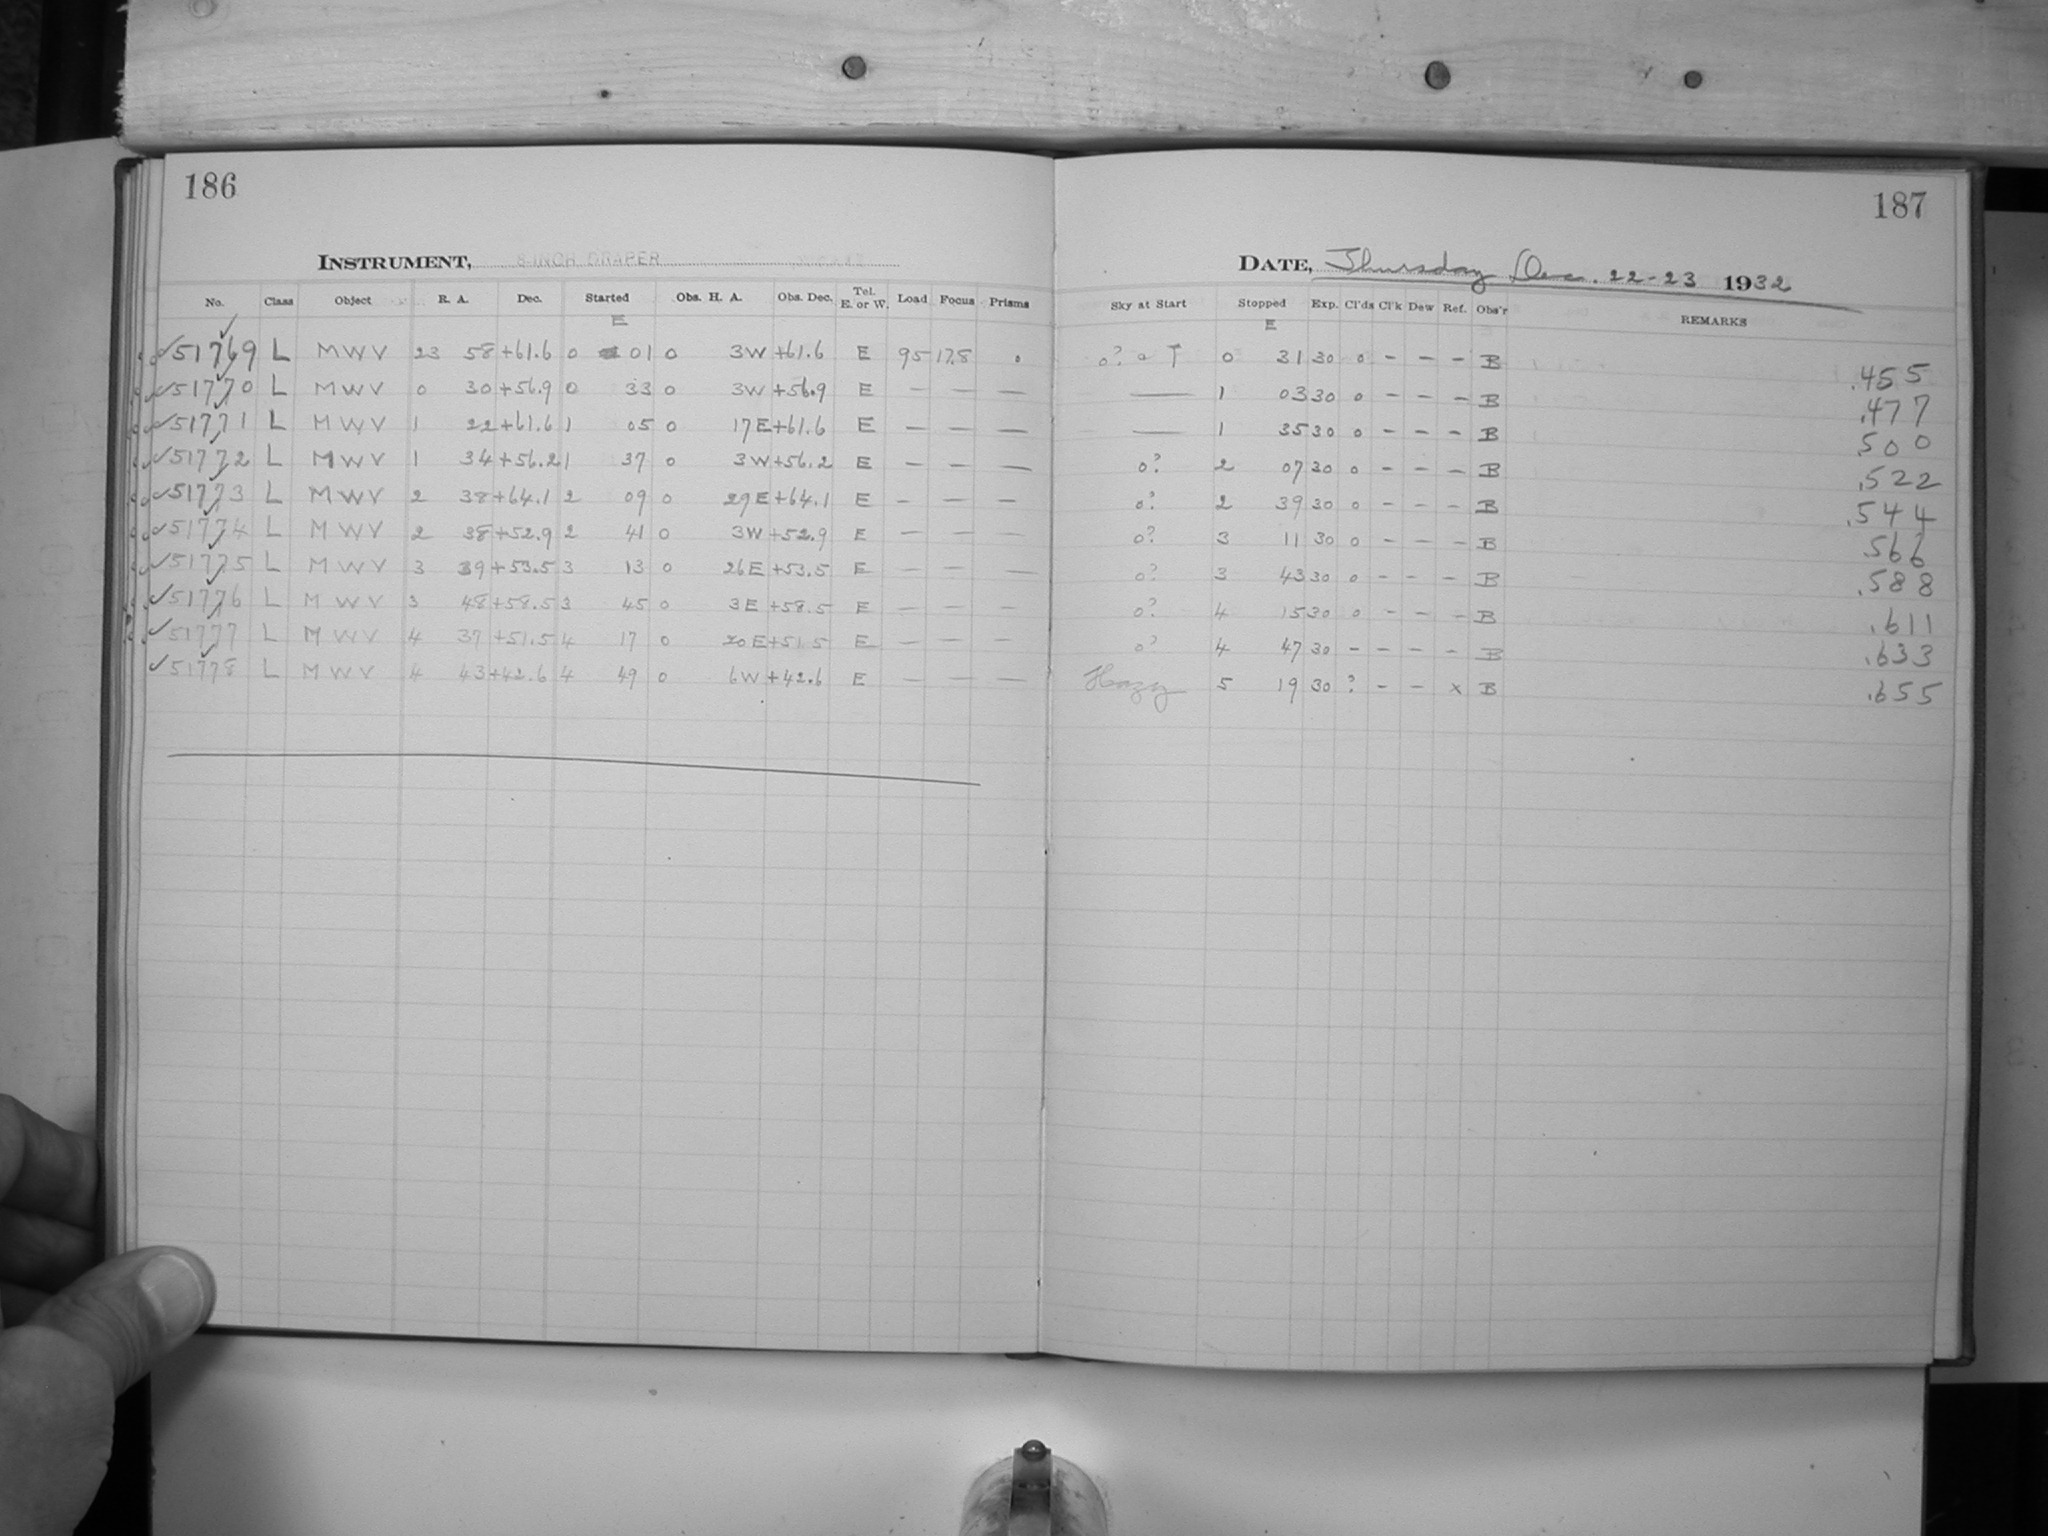 186
INSTRUMENT, 8-INCH DRAPER
No. Class Object R. A. Dec. Started Obs. H. A. Obs. Dec. Tel. E. or W. Load Focus Prisms
E
51769 L MWV 23 58 +61.6 0 01 0 3W +61.6 E 95 17.8 0
51770 L MWV 0 30 +56.9 0 33 0 3W +56.9 E — — —
51771 L MWV 1 22 +61.6 1 05 0 17E +61.6 E — — —
51772 L MWV 1 34 +56.2 1 37 0 3W +56.2 E — — —
51773 L MWV 2 38 +64.1 2 09 0 29E +64.1 E — — —
51774 L MWV 2 38 +52.9 2 41 0 3W +52.9 E — — —
51775 L MWV 3 39 +53.5 3 13 0 26E +53.5 E — — —
51776 L MWV 3 48 +58.5 3 45 0 3E +58.5 E — — —
51777 L MWV 4 37 +51.5 4 17 0 20E +51.5 E — — —
51778 L MWV 4 43 +42.6 4 49 0 6W +42.6 E — — —
187
DATE, Thursday Dec. 22-23 1932
Sky at Start Stopped Exp. Cl'ds Cl'k Dew Ref. Obs'r REMARKS
E
0? a T 0 31 30 0 - - - B .455
— 1 03 30 0 - - - B .477
— 1 35 30 0 - - - B .500
0? 2 07 30 0 - - - B .522
0? 2 39 30 0 - - - B .544
0? 3 11 30 0 - - - B .566
0? 3 43 30 0 - - - B .588
0? 4 15 30 0 - - - B .611
0? 4 47 30 - - - - B .633
Hazy 5 19 30 ? - - x B .655